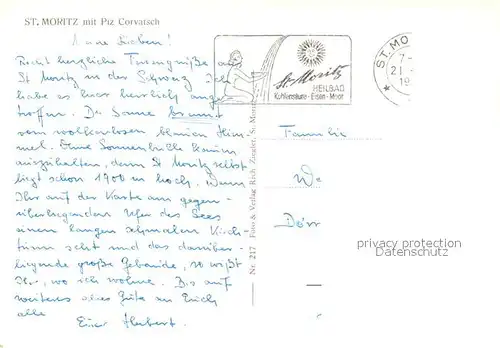 ST. MORITZ mit Piz Corvatsch
Meine Lieben!
Recht herzliche Feriengrüße aus
St Moritz in der Schweiz. Ich
habe es hier herrlich ange-
troffen. Die Sonne brennt
vom wolkenlosen blauen Him-
mel. Ohne Sonnenbrille kaum
auszuhalten, denn St Moritz selbst
liegt schon 1900 m hoch. Wenn
Ihr auf der Karte am gegen-
überliegenden Ufer des Sees
einen langen schmalen Kirch-
turm seht und das darüber-
liegende große Gebäude, so wißt
Ihr, wo ich wohne. Bis auf
weiteres alles Gute an Euch
alle
Euer Herbert.
Nr. 217 Foto & Verlag Rich. Ziegler, St. Moritz
St. Moritz
HEILBAD
Kohlensäure - Eisen - Moor
ST. MO
7-
21.
19
Familie
We
Dörr
privacy protection
Datenschutz